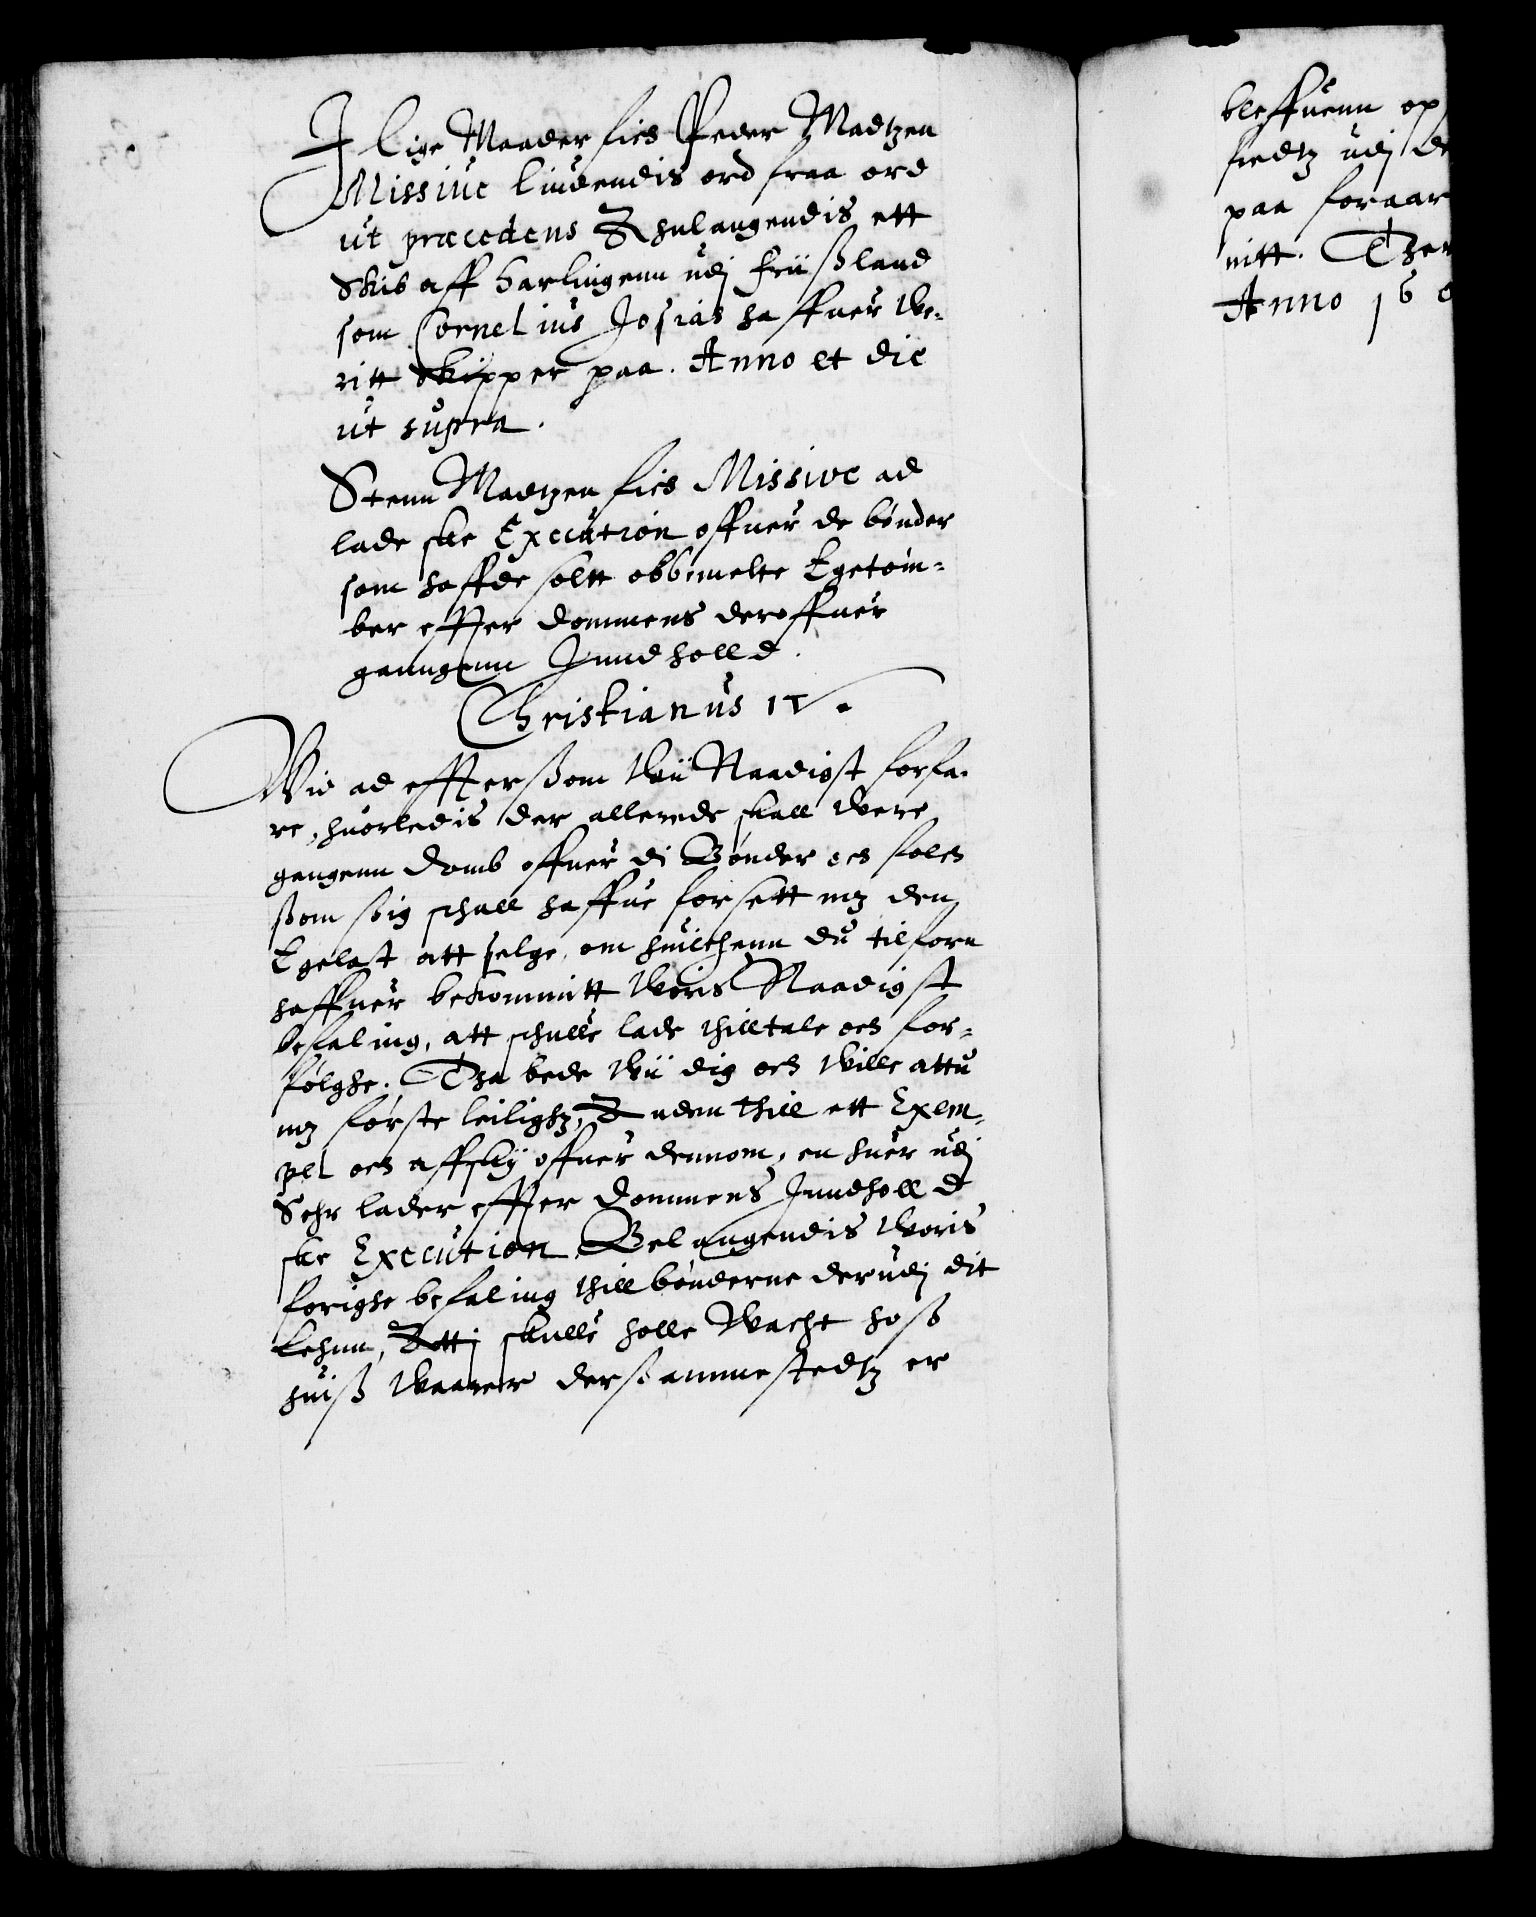 I lige Maader fick Peder Madtzen
Missive liudendis ord fraa ord
ut præcedens Anlangendis ett
Skib aff Harlingenn udj Friißland
som Cornelius Josias haffuer we-
ritt Skipper paa. Anno et die
ut supra.
Stenn Madtzen fick Missive ad
lade ske Execution offuer de bønder
som haffde soltt obbemelte Egetøm-
ber effter dommens deroffuer
ganngenn Inndholld.
Christianus IV.
Wid ad effterßom Wii Naadigst forfa-
re, huorledis der allerede skall were
gangenn domb offuer di Bønder och folch
ßom ßig schall haffue forsett mz den
Egelast att selge, om huilchenn du tilforn
haffuer bekommitt Woris Naadigst
befaling, att schulle lade thilltale och for-
følghe. Tha bede Wii dig och Wille attu
mz første leilighz, Andenn thill ett Exem-
pel och affsky offuer dennom, en huer udj
Sehr lader effter dommens Inndholld
ske Execution. Belangendis Woris
forighe befaling thill bønderne derudj dit
Lehnn, Att j skulle holle Wacht hoß
huiß Waarer dersammestedtz er
bleffuenn op
fiedtz udj de
paa foraar
nitt. Ther
Anno 16